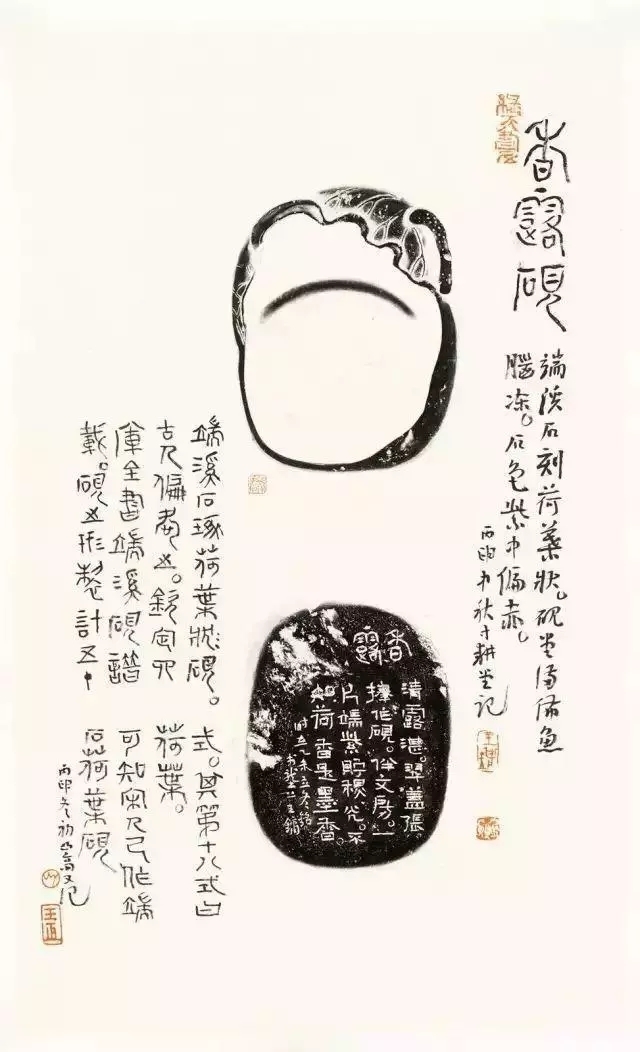 香露硯
端溪石刻荷葉狀。硯堂滿佈魚
腦凍。石色紫中偏赤。
丙申中秋十耕堂記
香露
清露湛。翠蓋張。
作硯。伴文房。一
片端紫貯穆光。不
知荷香是墨香
時乙未立冬後
端溪石琢荷葉狀硯。
古人偏愛之。欽定四
庫全書端溪硯譜
載。硯之形製計五十
式。其第十八式曰
荷葉。
可知宋人已作端
石荷葉硯
丙申冬初又記
王正